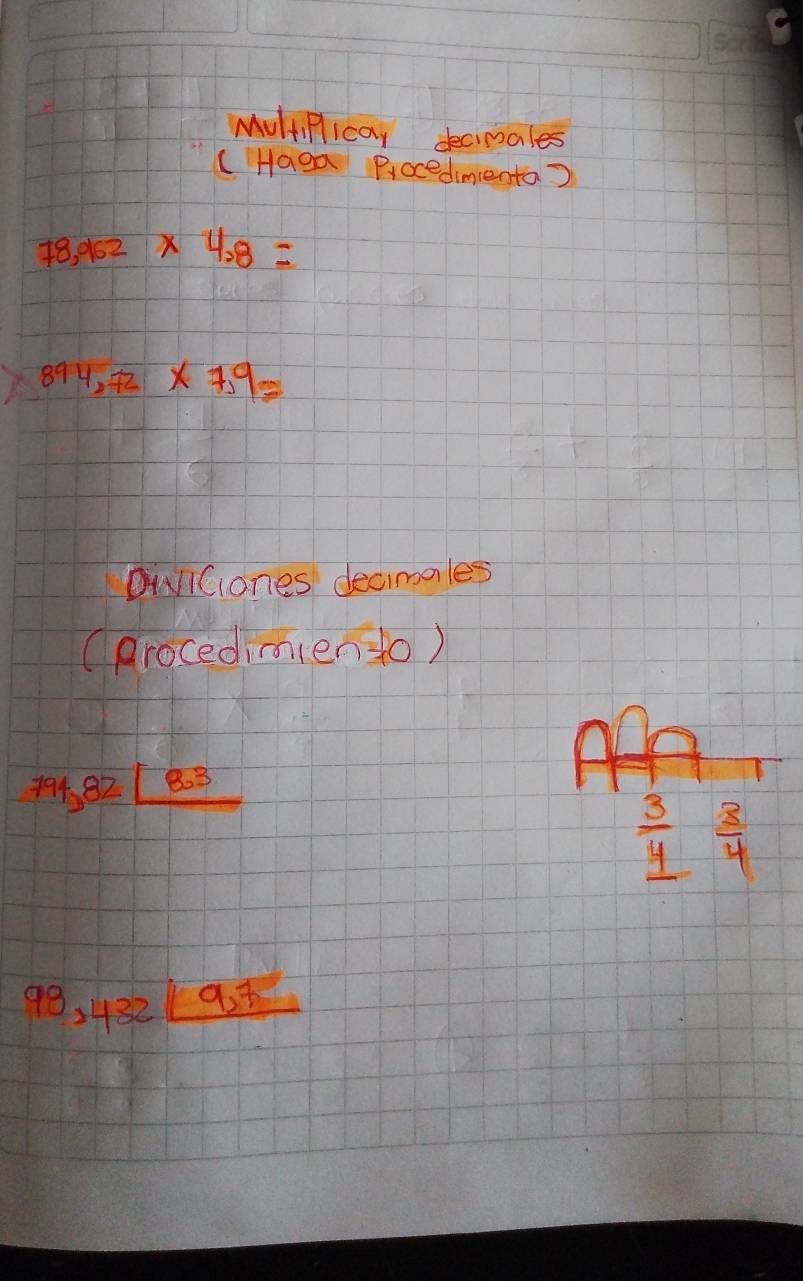 Multiplicar decimales
(Haga Procedimienta)
78,962 x 4,8 =
894,72 x 7,9=
Diviciones decimales
(procedimiento)
794,82 8,3
3/4 3/4
98,432 9,7